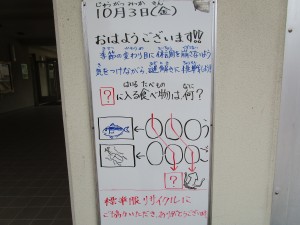 じゅうがつ みっか きん
10月3日(金)
おはようございます!!
季節の変わり目に体調を崩さないよう
気をつけながら、謎解きに挑戦しよう!
はい たべもの なに
?に入る食べ物は何?
←○○○う
←○○○ご
?
標準服リサイクルに
ご協力いただき、ありがとうございます